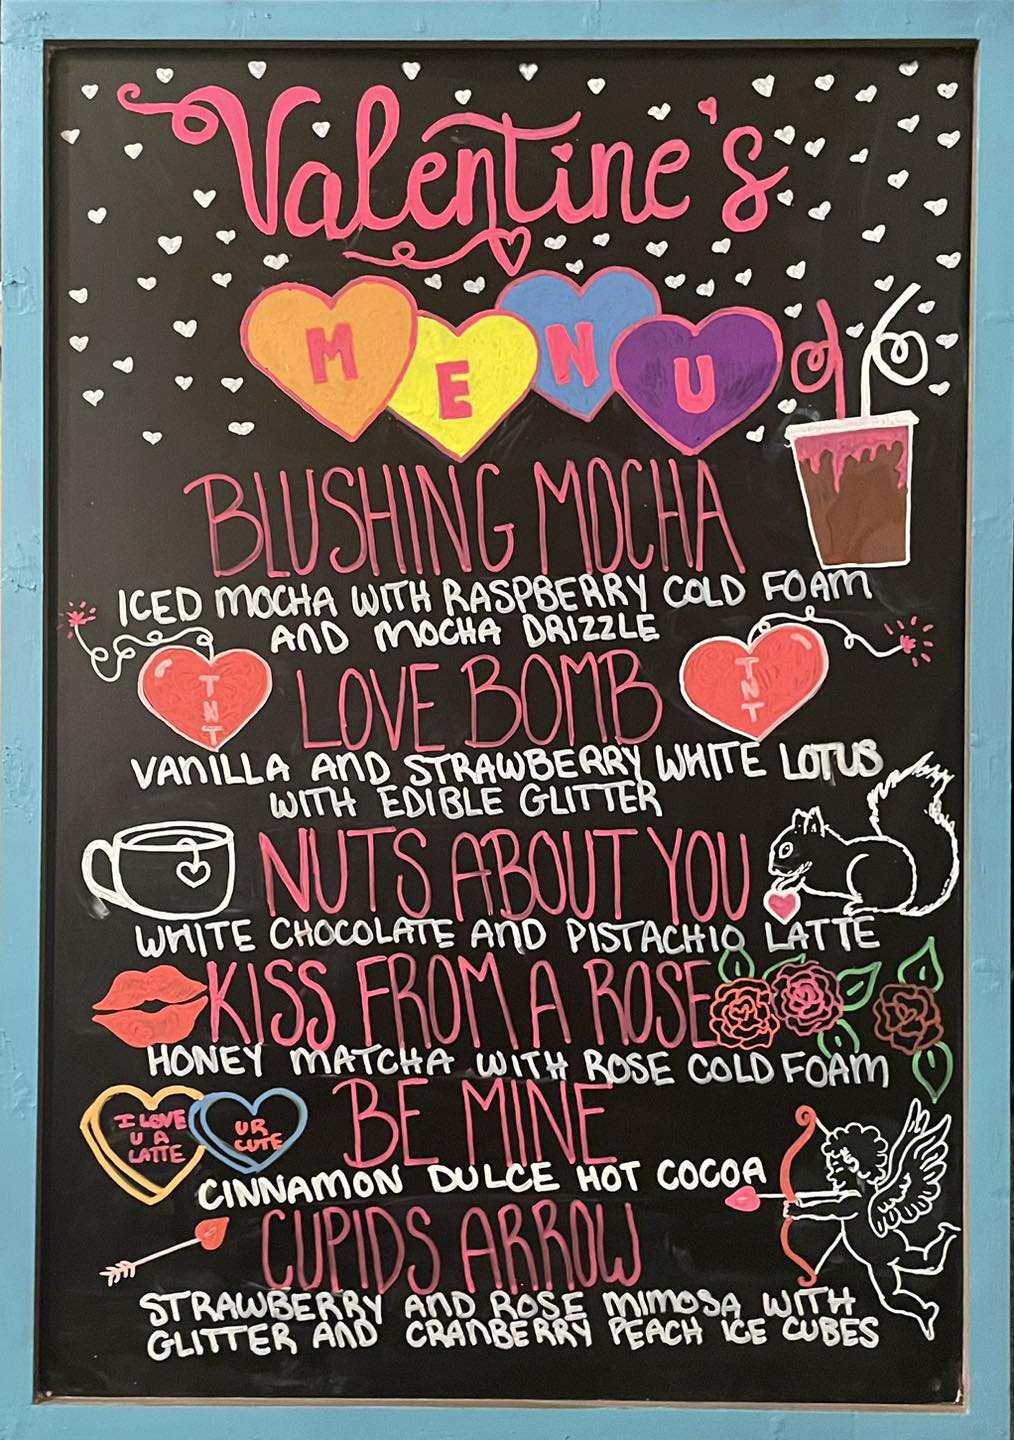 Valentine's
MENU
BLUSHING MOCHA
ICED MOCHA WITH RASPBERRY COLD FOAM
AND MOCHA DRIZZLE
TNT
LOVE BOMB
TNT
VANILLA AND STRAWBERRY WHITE LOTUS
WITH EDIBLE GLITTER
NUTS ABOUT YOU
WHITE CHOCOLATE AND PISTACHIO LATTE
KISS FROM A ROSE
HONEY MATCHA WITH ROSE COLD FOAM
I LOVE
U A
LATTE
UR
CUTE
BE MINE
CINNAMON DULCE HOT COCOA
CUPIDS ARROW
STRAWBERRY AND ROSE MIMOSA WITH
GLITTER AND CRANBERRY PEACH ICE CUBES